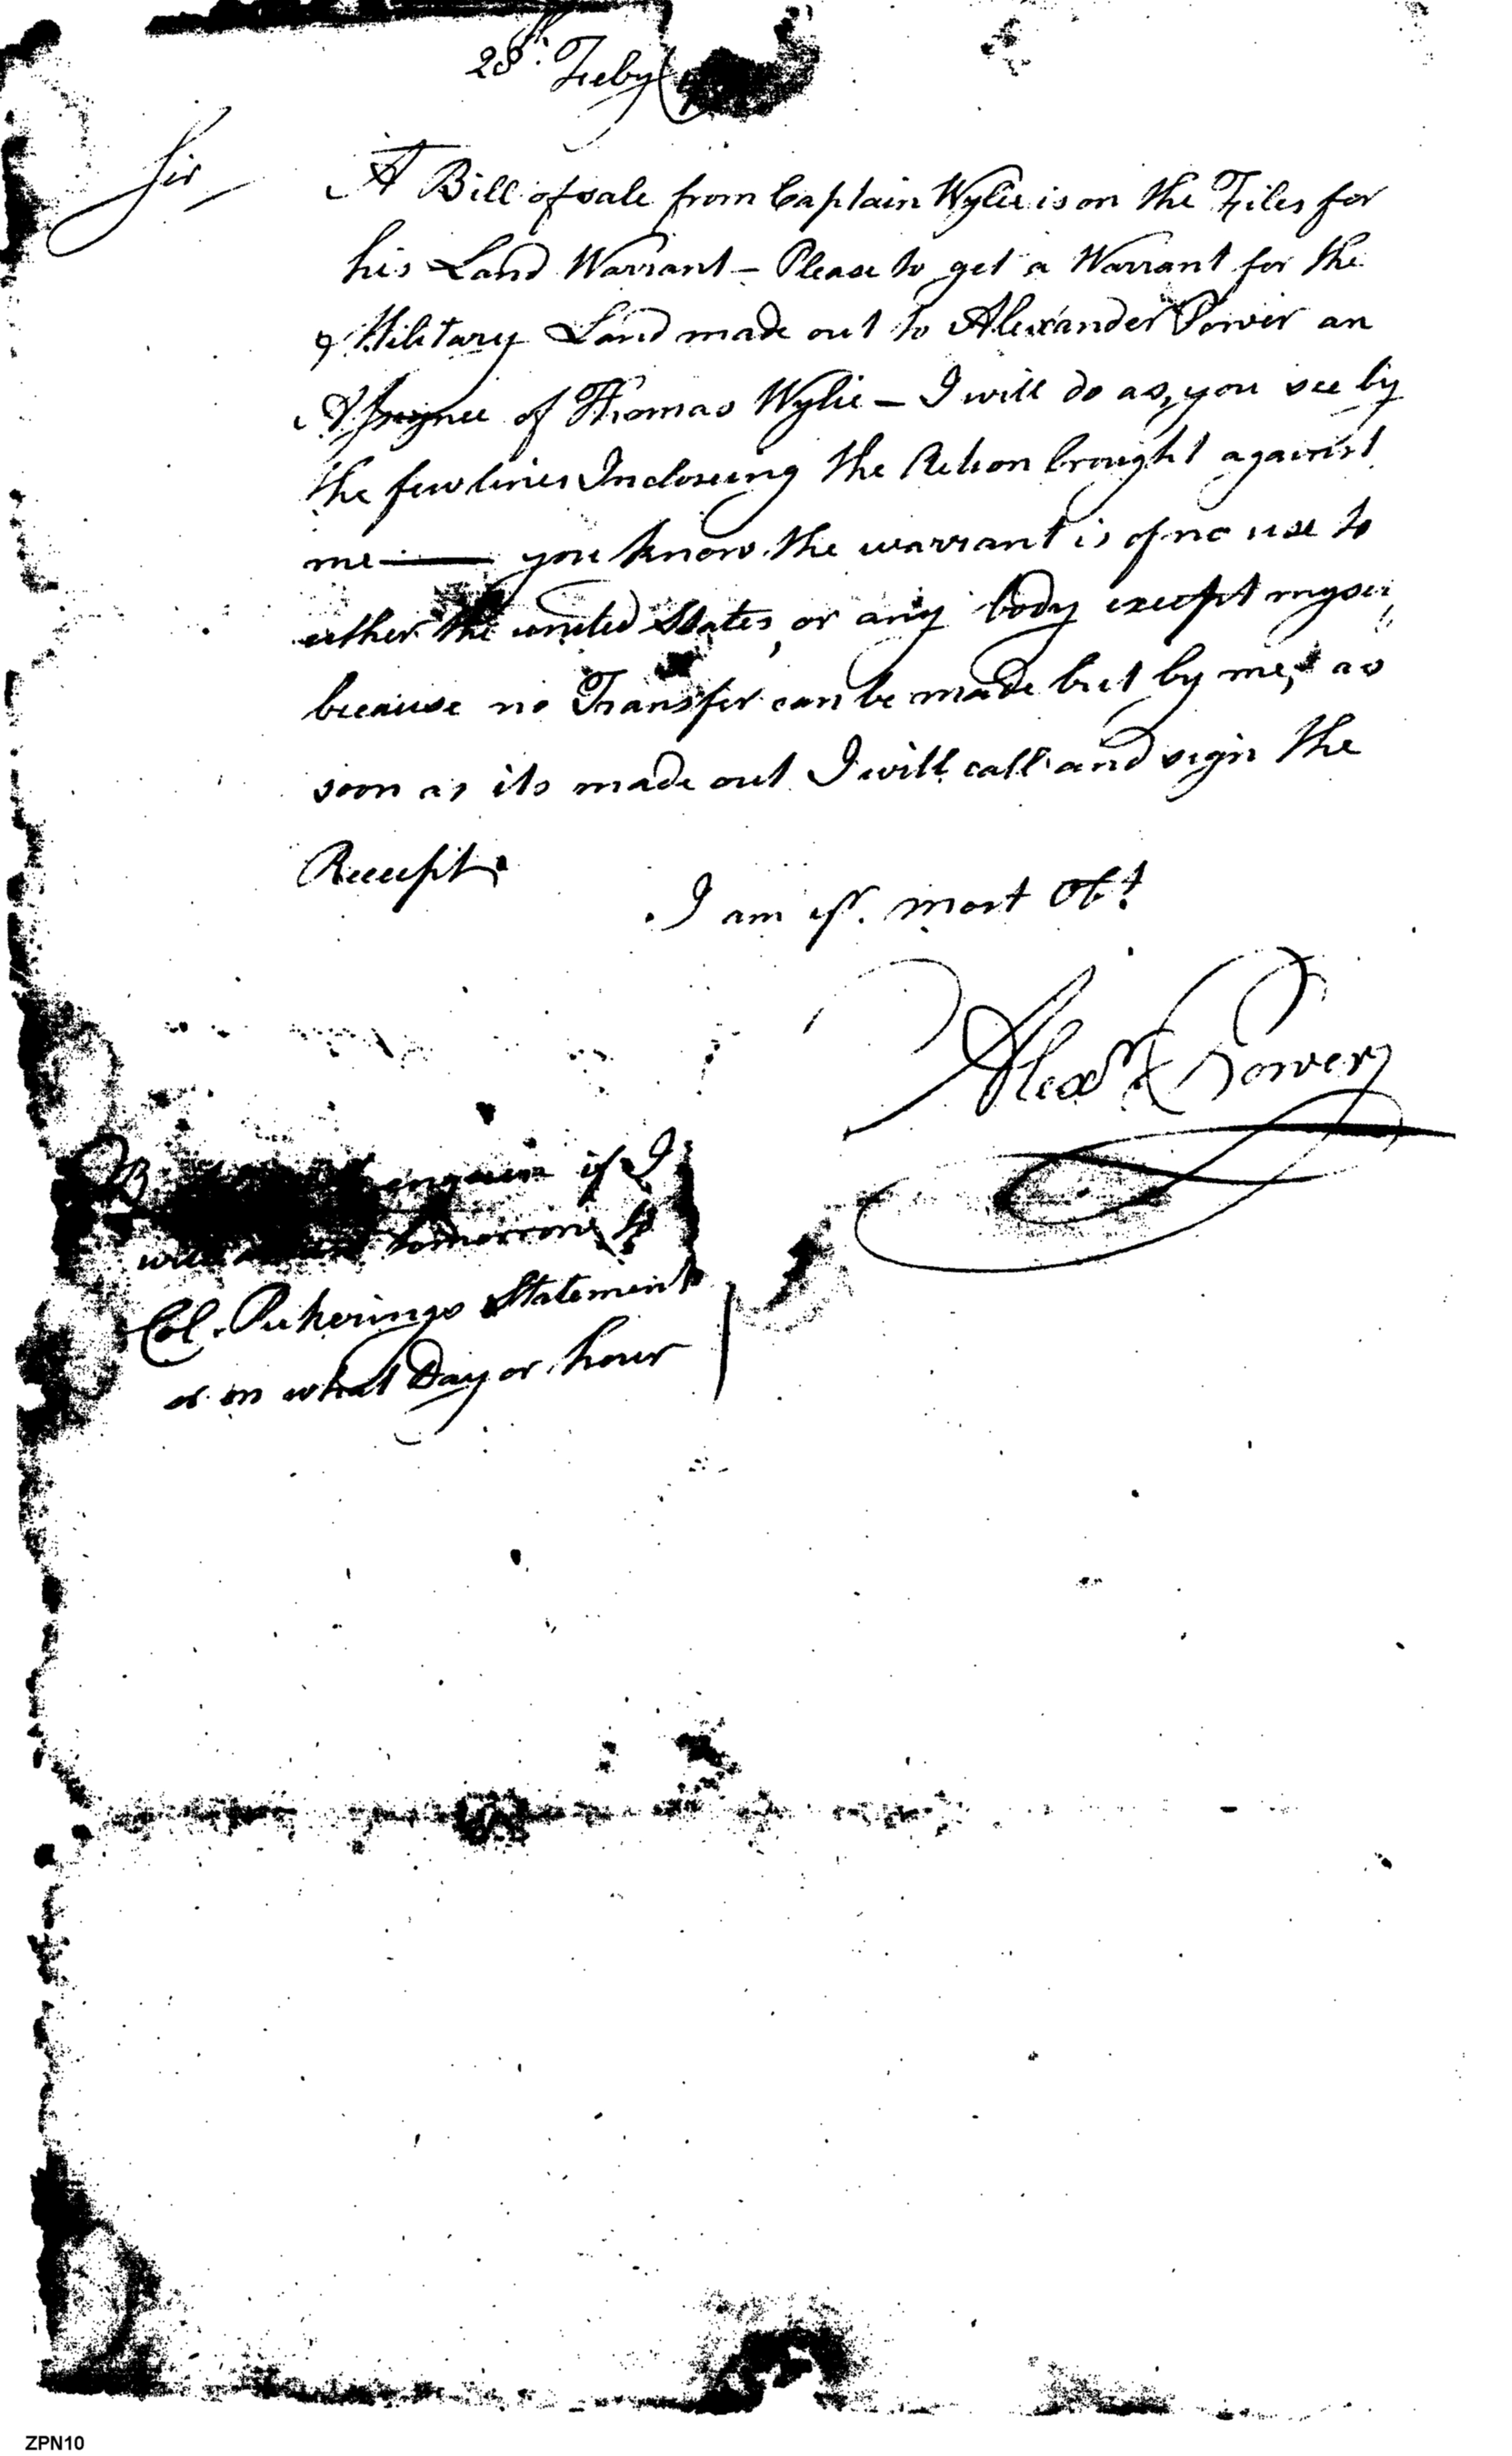 28th. Feeby
Sir
A Bill of sale from Captain Wylie is on the Files for
his Land Warrant – Please to get a Warrant for the
Military Land made out to Alexander Power an
Assignee of Thomas Wylie – I will do as, you see by
the few lines Incloseing the Action brought against
me — you know the warrant is of no use to
either the united States, or any body except myself
because no Transfer can be made but by me, as
soon as its made out I will call and sign the
Receipt
I am yr. most Obt
Alexdr Power
NB enquire if I
will tomorrow to
Col. Pickerings Statement
or on what Day or hour
ZPN10